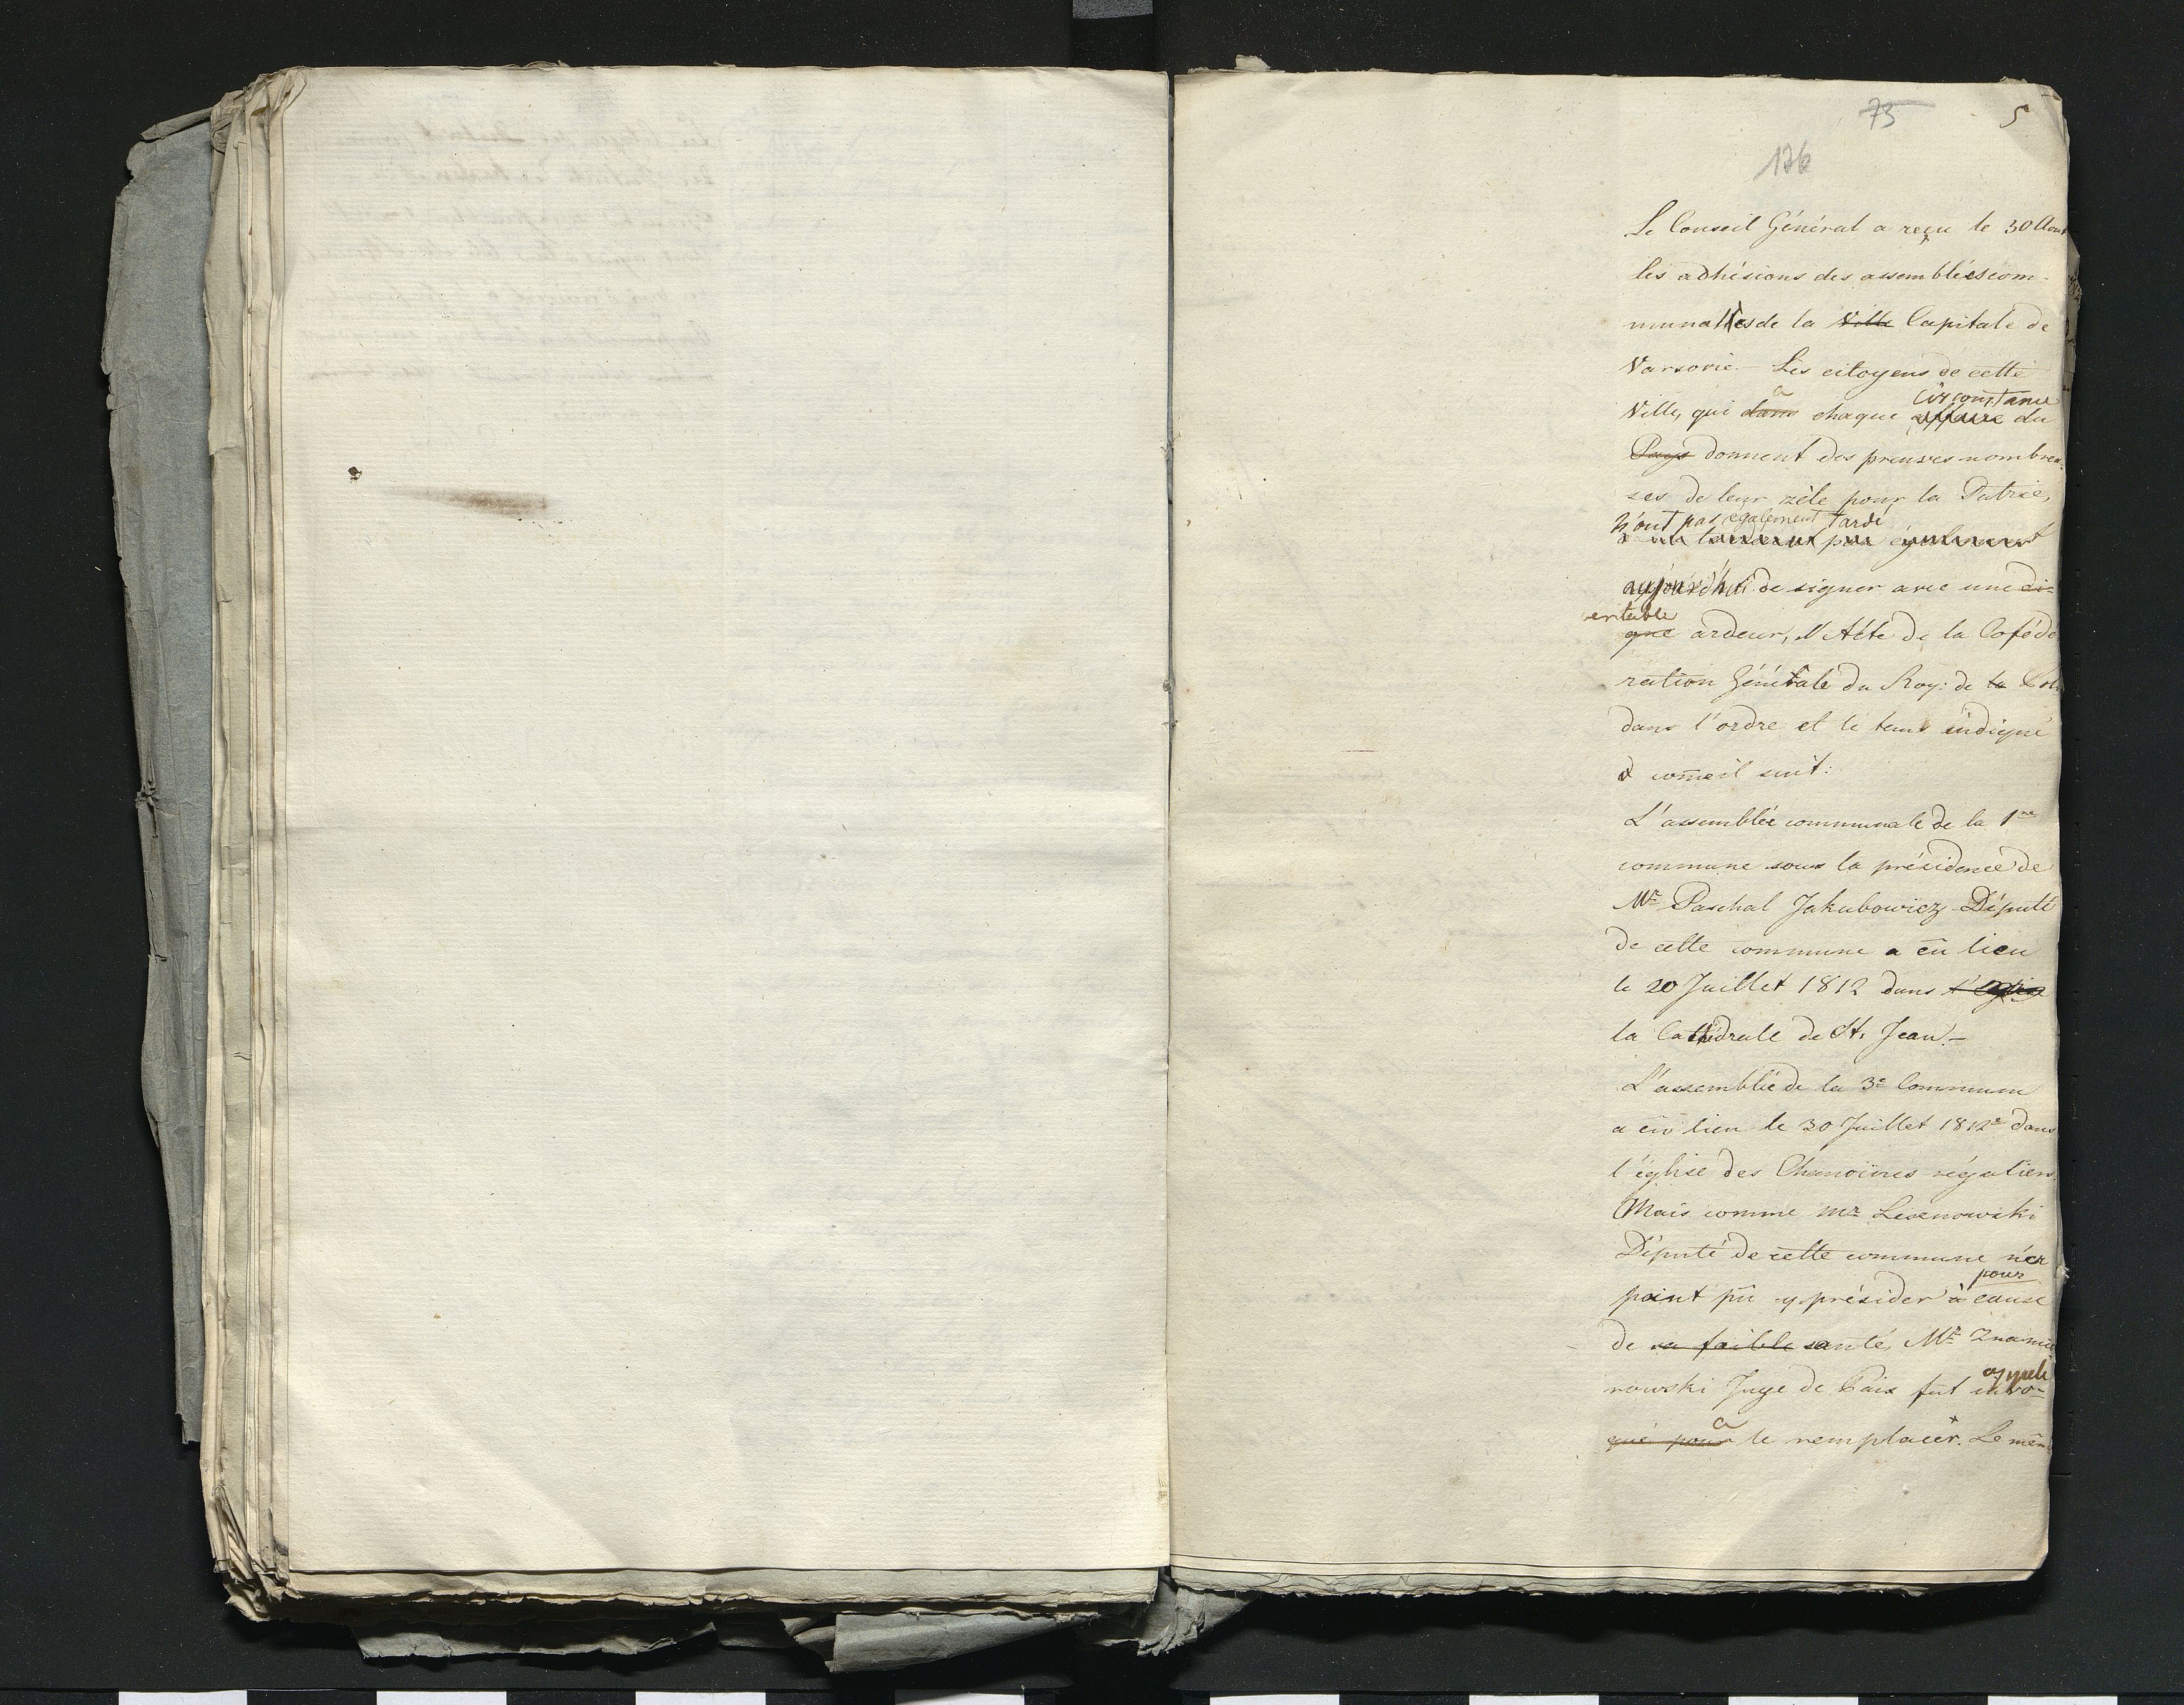 75 5
136
Le Conseil Général a reçu le 30 Aout
les adhésions des assemblées com-
munales de la Ville Capitale de
Varsovie. – Les citoyens de cette
à Circonstance
Ville, qui dans chaque affaire du
Pays donnent des preuves nombreu-
ses de leur zèle pour la Patrie,
n'ont pas également tardé
pas également
aujourd'hui de signer avec une di-
eritable
gne ardeur, l'Acte de la Coféde
ration Générale du Roy: de la Pol
dans l'ordre et le tems indiqué
comme il suit:
L'assemblée communale de la 1re
commune sous la présidence de
Mr Paschal Jakubowicz Député
de cette commune a eû lieu
le 20 Juillet 1812 dans l'Eglise
la Cathédrale de St. Jean. –
L'assemblée de la 3e Commune
a eû lieu le 30 Juillet 1812e dans
l'église des Chanoines réguliers.
Mais comme Mr Lesznowski
Député de cette commune n'en
pour
point pû y présider à cause
de sa faible santé, Mr Znamie
appelé
rowski Juge de Paix fut invo-
a
qué pour le remplacer. Le mêm